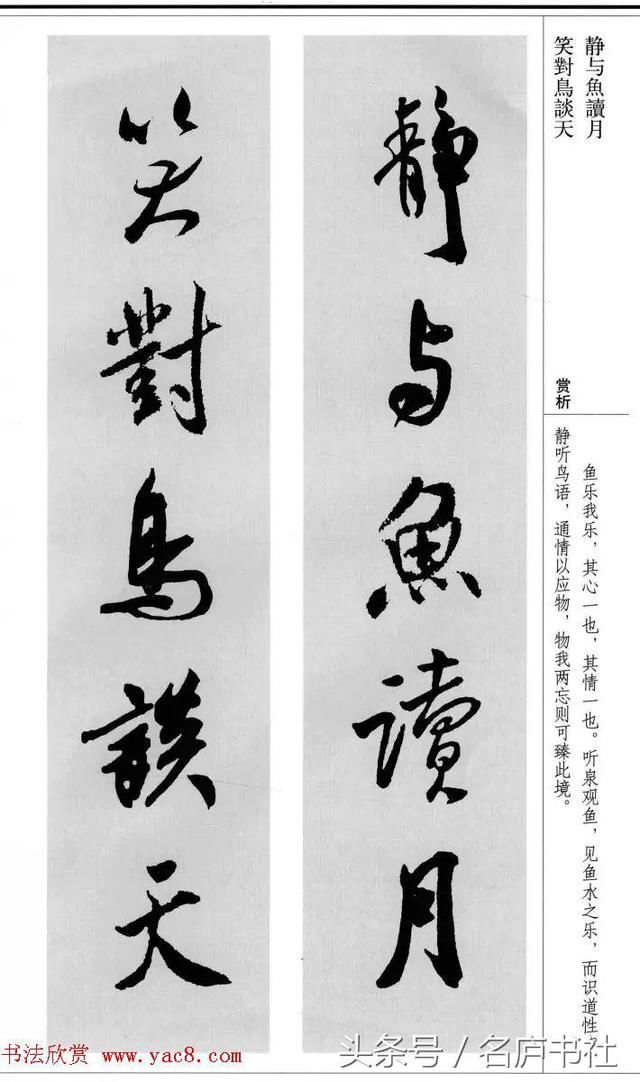 静与魚讀月
笑對鳥談天
赏析
鱼乐我乐，其心一也，其情一也。听泉观鱼，见鱼水之乐，而识道性，
静听鸟语，通情以应物，物我两忘则可臻此境。
静与魚讀月
笑對鳥談天
书法欣赏 www.yac8.com
头条号/名庐书社